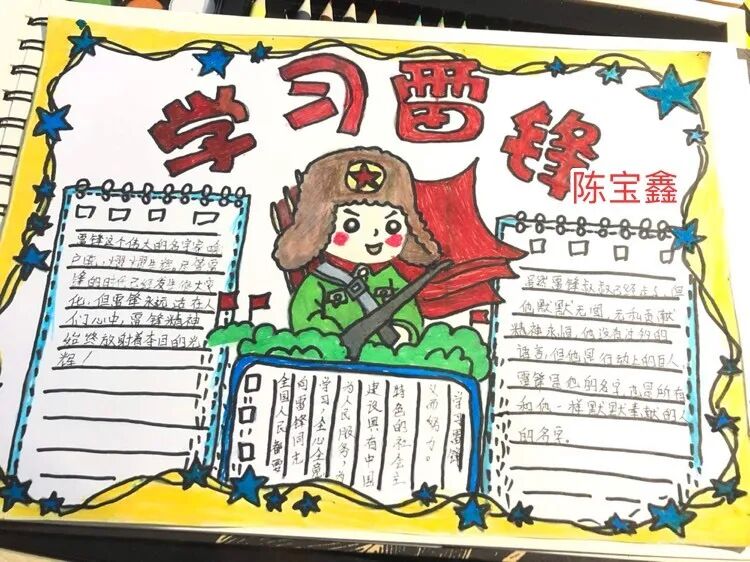 学习雷锋
陈宝鑫
雷锋这个伟大的名字家喻
户晓,熠熠生辉。尽管雷
锋的时代已经发生很大变
化,但雷锋永远活在人
们心中,雷锋精神
始终放射着夺目的光
辉!
学习雷锋
义而努力。
特色的社会主
建设具有中国
为人民服务,为
学习,全心全意
向雷锋同志
全国人民都要
虽然雷锋叔叔已经去了,但
他默默无闻,无私贡献
精神永恒,他没有过多的
语言,但他是行动上的巨人
雷锋是他的名字,也是所有
和他一样默默奉献的人
的名字。